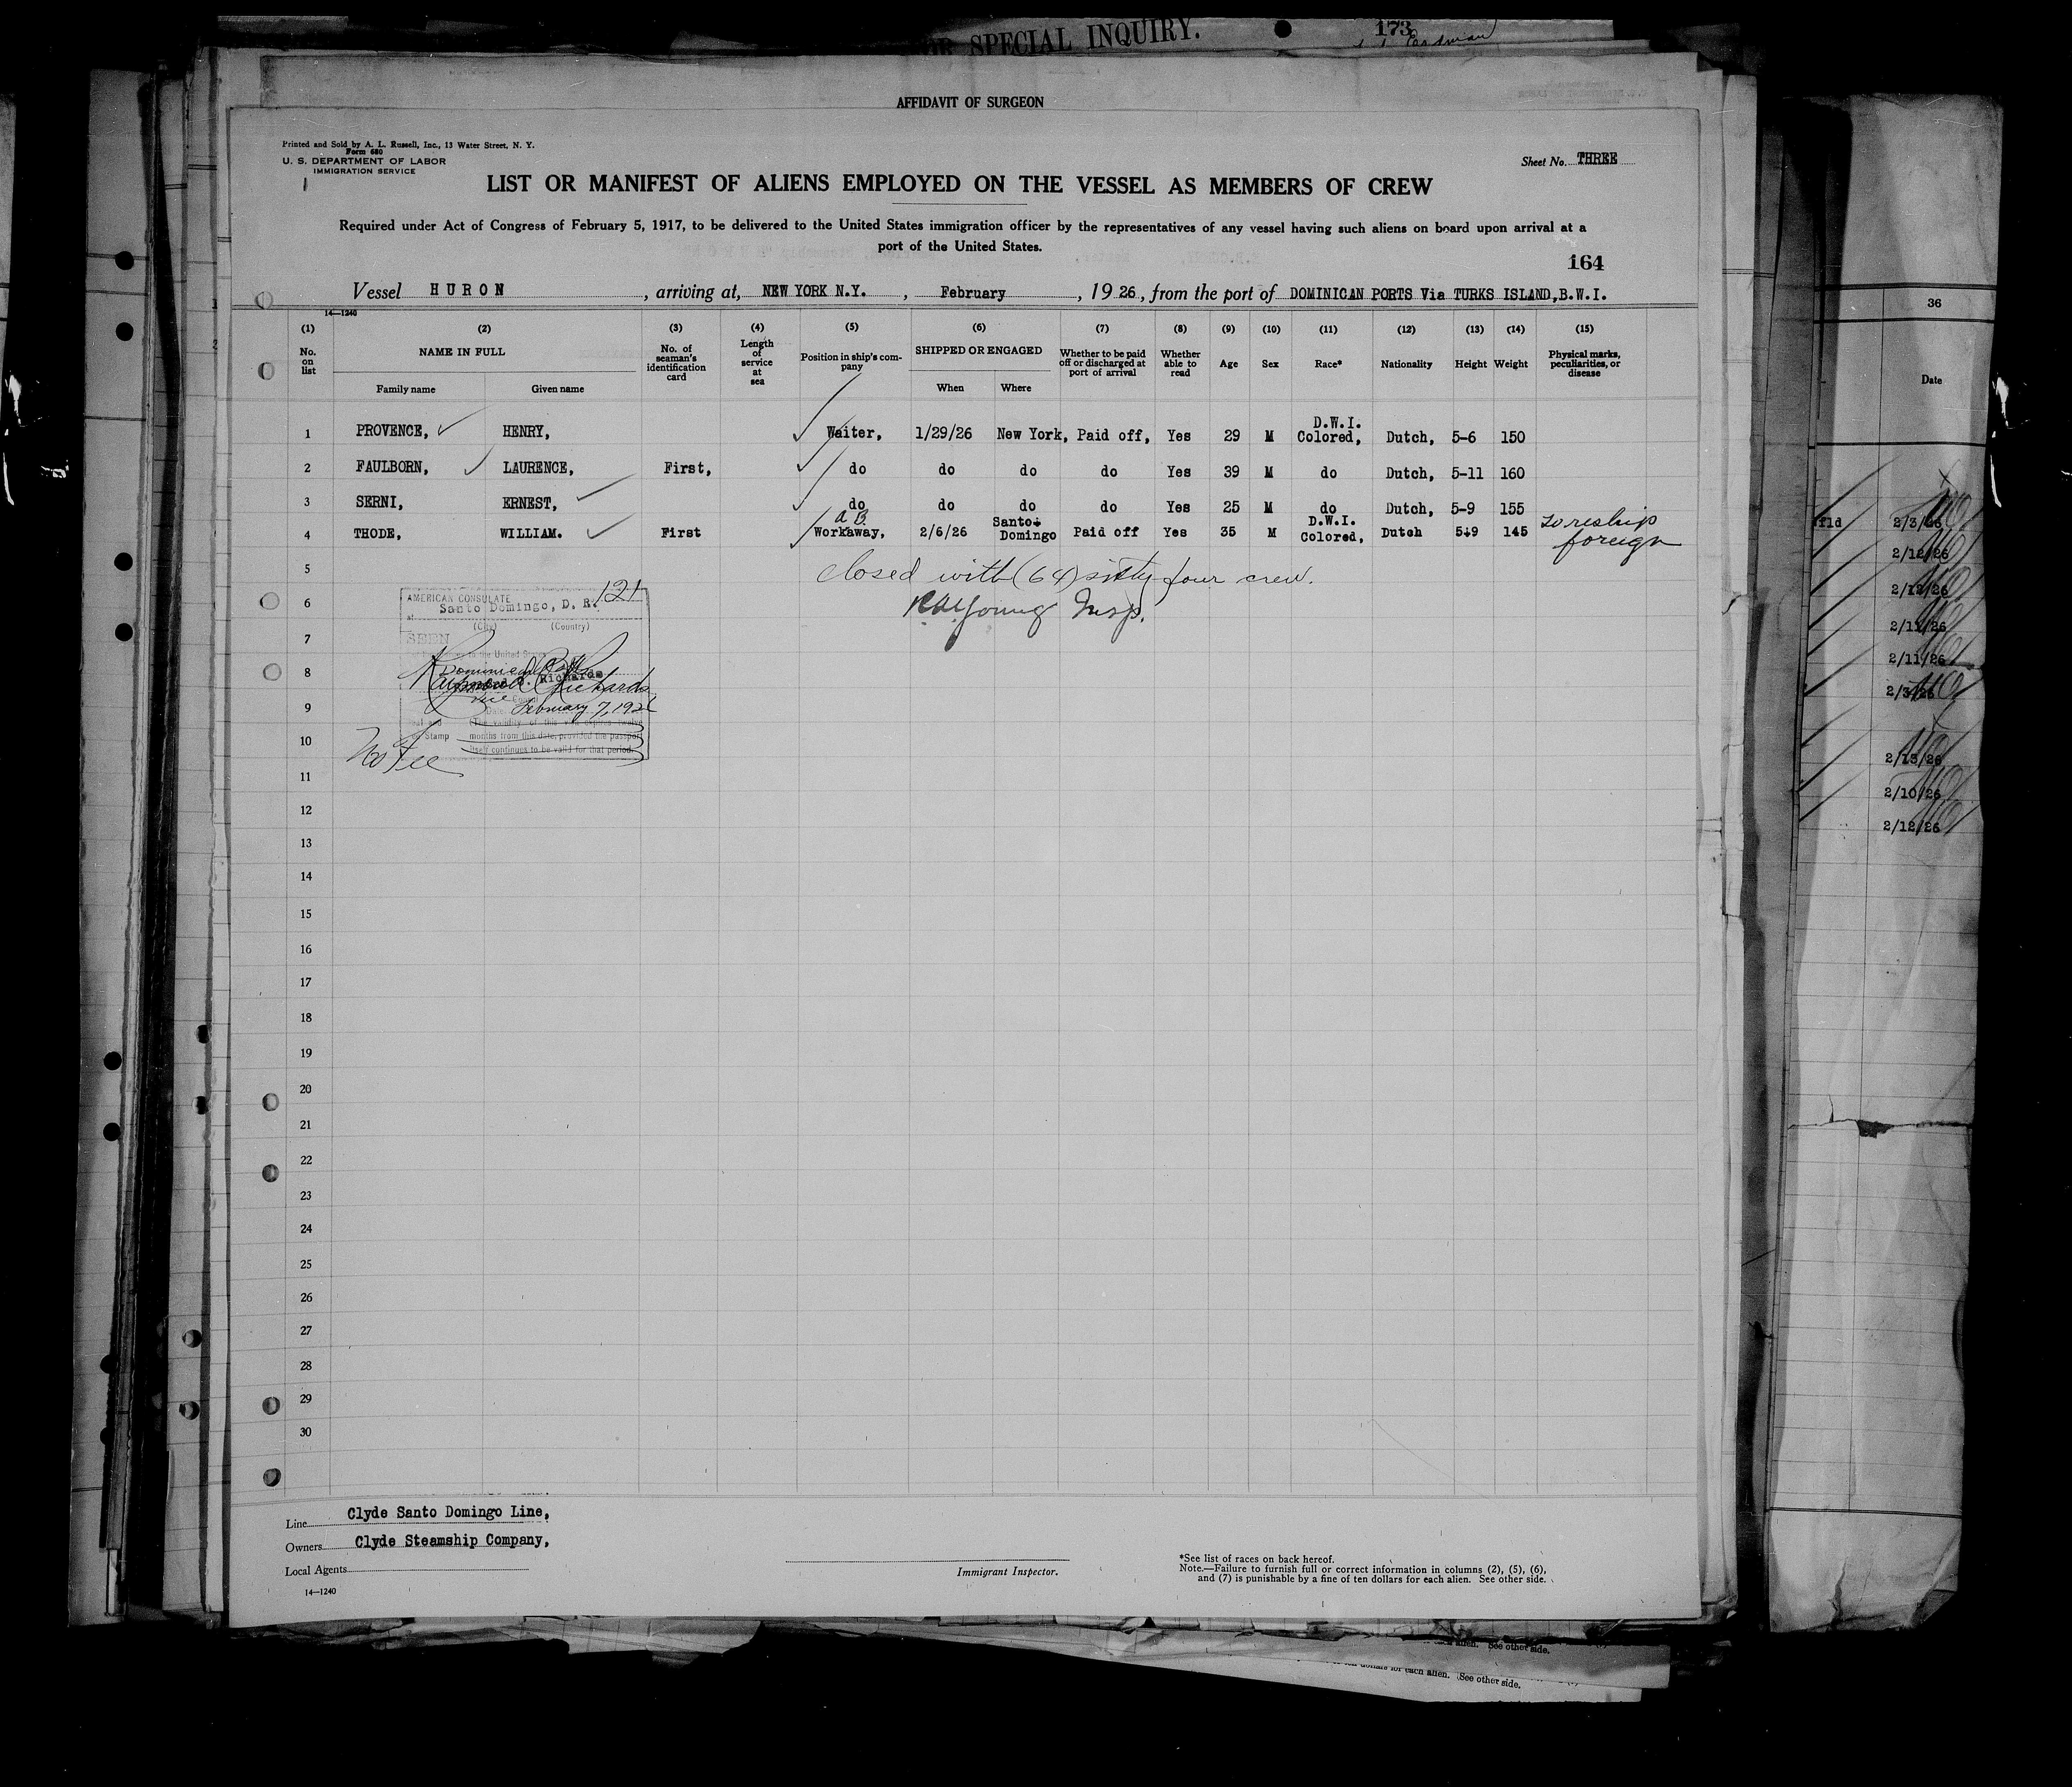 SPECIAL INQUIRY.
173
AFFIDAVIT OF SURGEON
Printed and Sold by A. L. Russell, Inc., 13 Water Street, N. Y.
Form 680
U. S. DEPARTMENT OF LABOR
IMMIGRATION SERVICE
Sheet No. THREE
LIST OR MANIFEST OF ALIENS EMPLOYED ON THE VESSEL AS MEMBERS OF CREW
Required under Act of Congress of February 5, 1917, to be delivered to the United States immigration officer by the representatives of any vessel having such aliens on board upon arrival at a
port of the United States.
164
Vessel HURON, arriving at, NEW YORK N.Y., February, 1926, from the port of DOMINICAN PORTS Via TURKS ISLAND,B.W.I.
14—1240
(1) (2) (3) (4) (5) (6) (7) (8) (9) (10) (11) (12) (13) (14) (15)
No. on list
NAME IN FULL
Family name Given name
No. of seaman's identification card
Length of service at sea
Position in ship's company
SHIPPED OR ENGAGED
When Where
Whether to be paid off or discharged at port of arrival
Whether able to read
Age Sex Race* Nationality Height Weight
Physical marks, peculiarities, or disease
1 PROVENCE, HENRY, Waiter, 1/29/26 New York, Paid off, Yes 29 M D.W.I. Colored, Dutch, 5-6 150
2 FAULBORN, LAURENCE, First, do do do do Yes 39 M do Dutch, 5-11 160
3 SERNI, ERNEST, do do do do Yes 25 M do Dutch, 5-9 155
4 THODE, WILLIAM. First A.B. Workaway, 2/6/26 Santo Domingo Paid off Yes 35 M D.W.I. Colored, Dutch 5-9 145 to reship foreign
5 closed with (64) sixty four crew.
6 Young Insp.
7
8
9
10
11
12
13
14
15
16
17
18
19
20
21
22
23
24
25
26
27
28
29
30
121
AMERICAN CONSULATE
at Santo Domingo, D. R.
(City) (Country)
SEEN
Richards
February 7, 192
Stamp
(The validity of this visa expires twelve
months from this date, provided the passport
itself continues to be valid for that period.
No Fee
Line Clyde Santo Domingo Line,
Owners Clyde Steamship Company,
Local Agents
14—1240
Immigrant Inspector.
*See list of races on back hereof.
Note.—Failure to furnish full or correct information in columns (2), (5), (6),
and (7) is punishable by a fine of ten dollars for each alien. See other side.
36
Date
2/3/26
2/12/26
2/12/26
2/11/26
2/11/26
2/3/26
2/13/26
2/10/26
2/12/26
alien. See other side.
dollars for each alien. See other side.